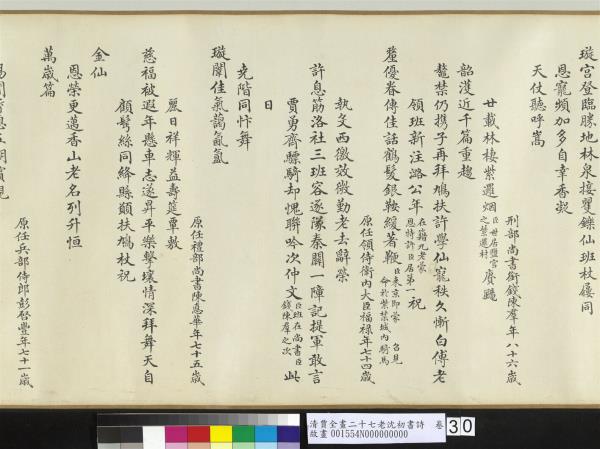 璇宮登臨勝地林泉接矍鑠仙班杖屨同
恩寵頻加多自幸香凝
天仗聽呼嵩
刑部尚書銜錢陳羣年八十六歲
廿載林棲紫邏烟臣世居鹽官之紫邏村賡颺
韶濩近千篇重趨
鼇禁仍攜子再拜鳩扶許學仙寵秩久慚白傅老
領班新注潞公年在籍九老蒙恩特許臣居第一祝
釐優眷傳佳話鶴髮銀鞍緩著鞭臣來京即蒙召見命於紫禁城內騎馬
原任領侍衛內大臣福祿年七十四歲
執殳西徼效微勤老去辭榮
許息筋洛社三班容逐隊秦關一障記提軍敢言
賈勇齊驃騎却愧聯吟次仲文臣班在尚書臣錢陳羣之次此
日
堯階同忭舞
璇闈佳氣藹氤氳
原任禮部尚書陳悳華年七十五歲
麗日祥輝益壽筵覃敷
慈福被遐年懸車志遂昇平樂擊壤情深拜舞天自
顧髩絲同絳縣顚扶鳩杖祝
金仙
恩榮更邁香山老名列升恒
萬歲篇
原任兵部侍郎彭啓豐年七十一歲
清賈全畫二十七老沈初書詩 卷 30
故畫 001554N000000000